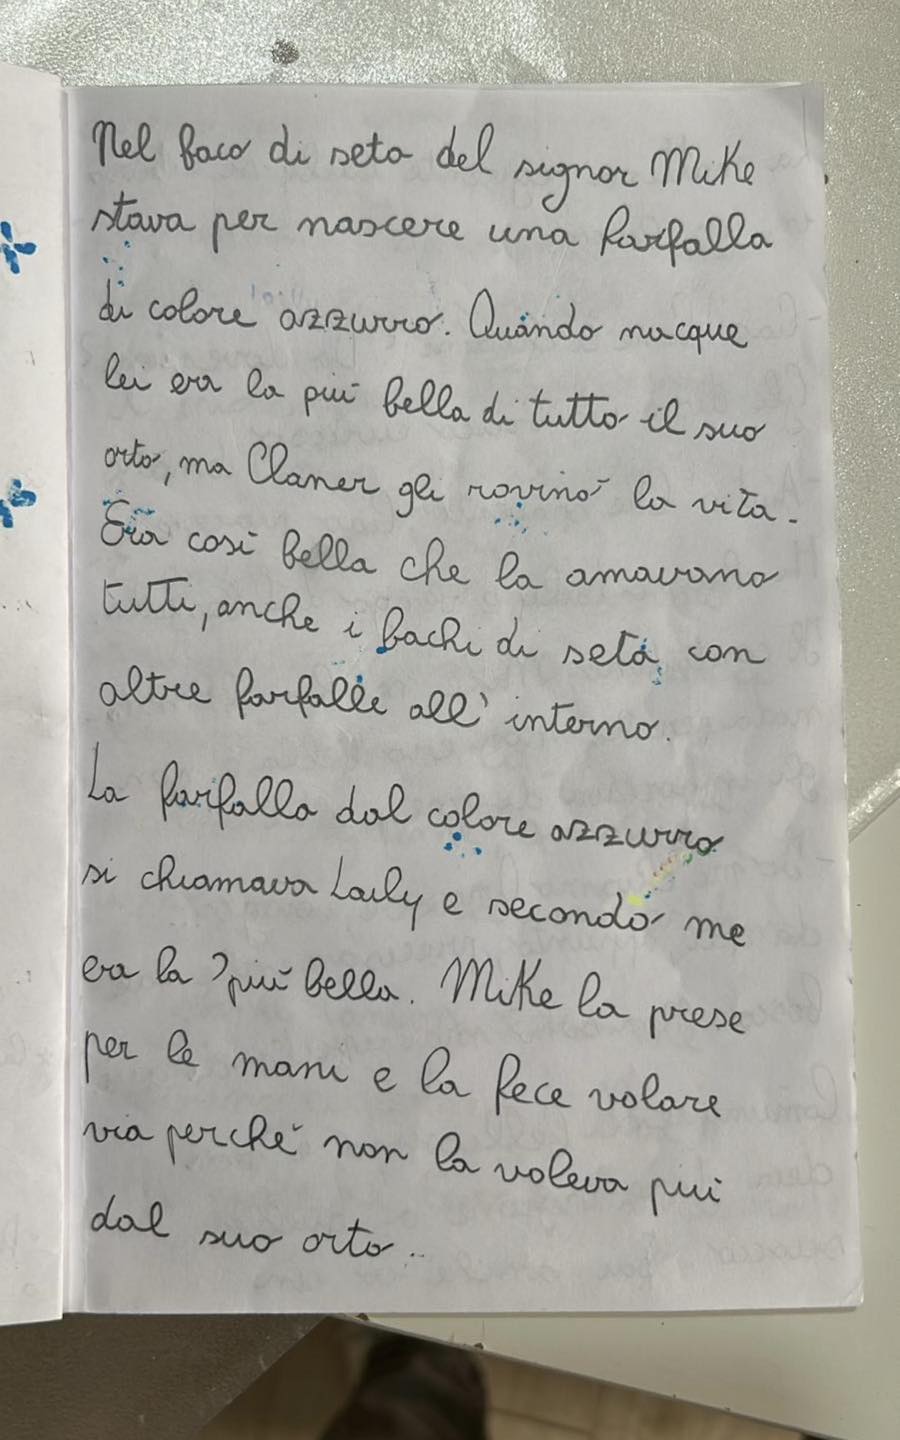 Nel baco di seta del signor Mike
stava per nascere una farfalla
di colore azzurro. Quando nacque
lei era la più bella di tutto il suo
orto, ma Claner gli rovinò la vita.
Era così bella che la amavano
tutti, anche i bachi di seta con
altre farfalle all'interno.
La farfalla dal colore azzurro
si chiamava Laily e secondo me
era la più bella. Mike la prese
per le mani e la fece volare
via perché non la voleva più
dal suo orto..